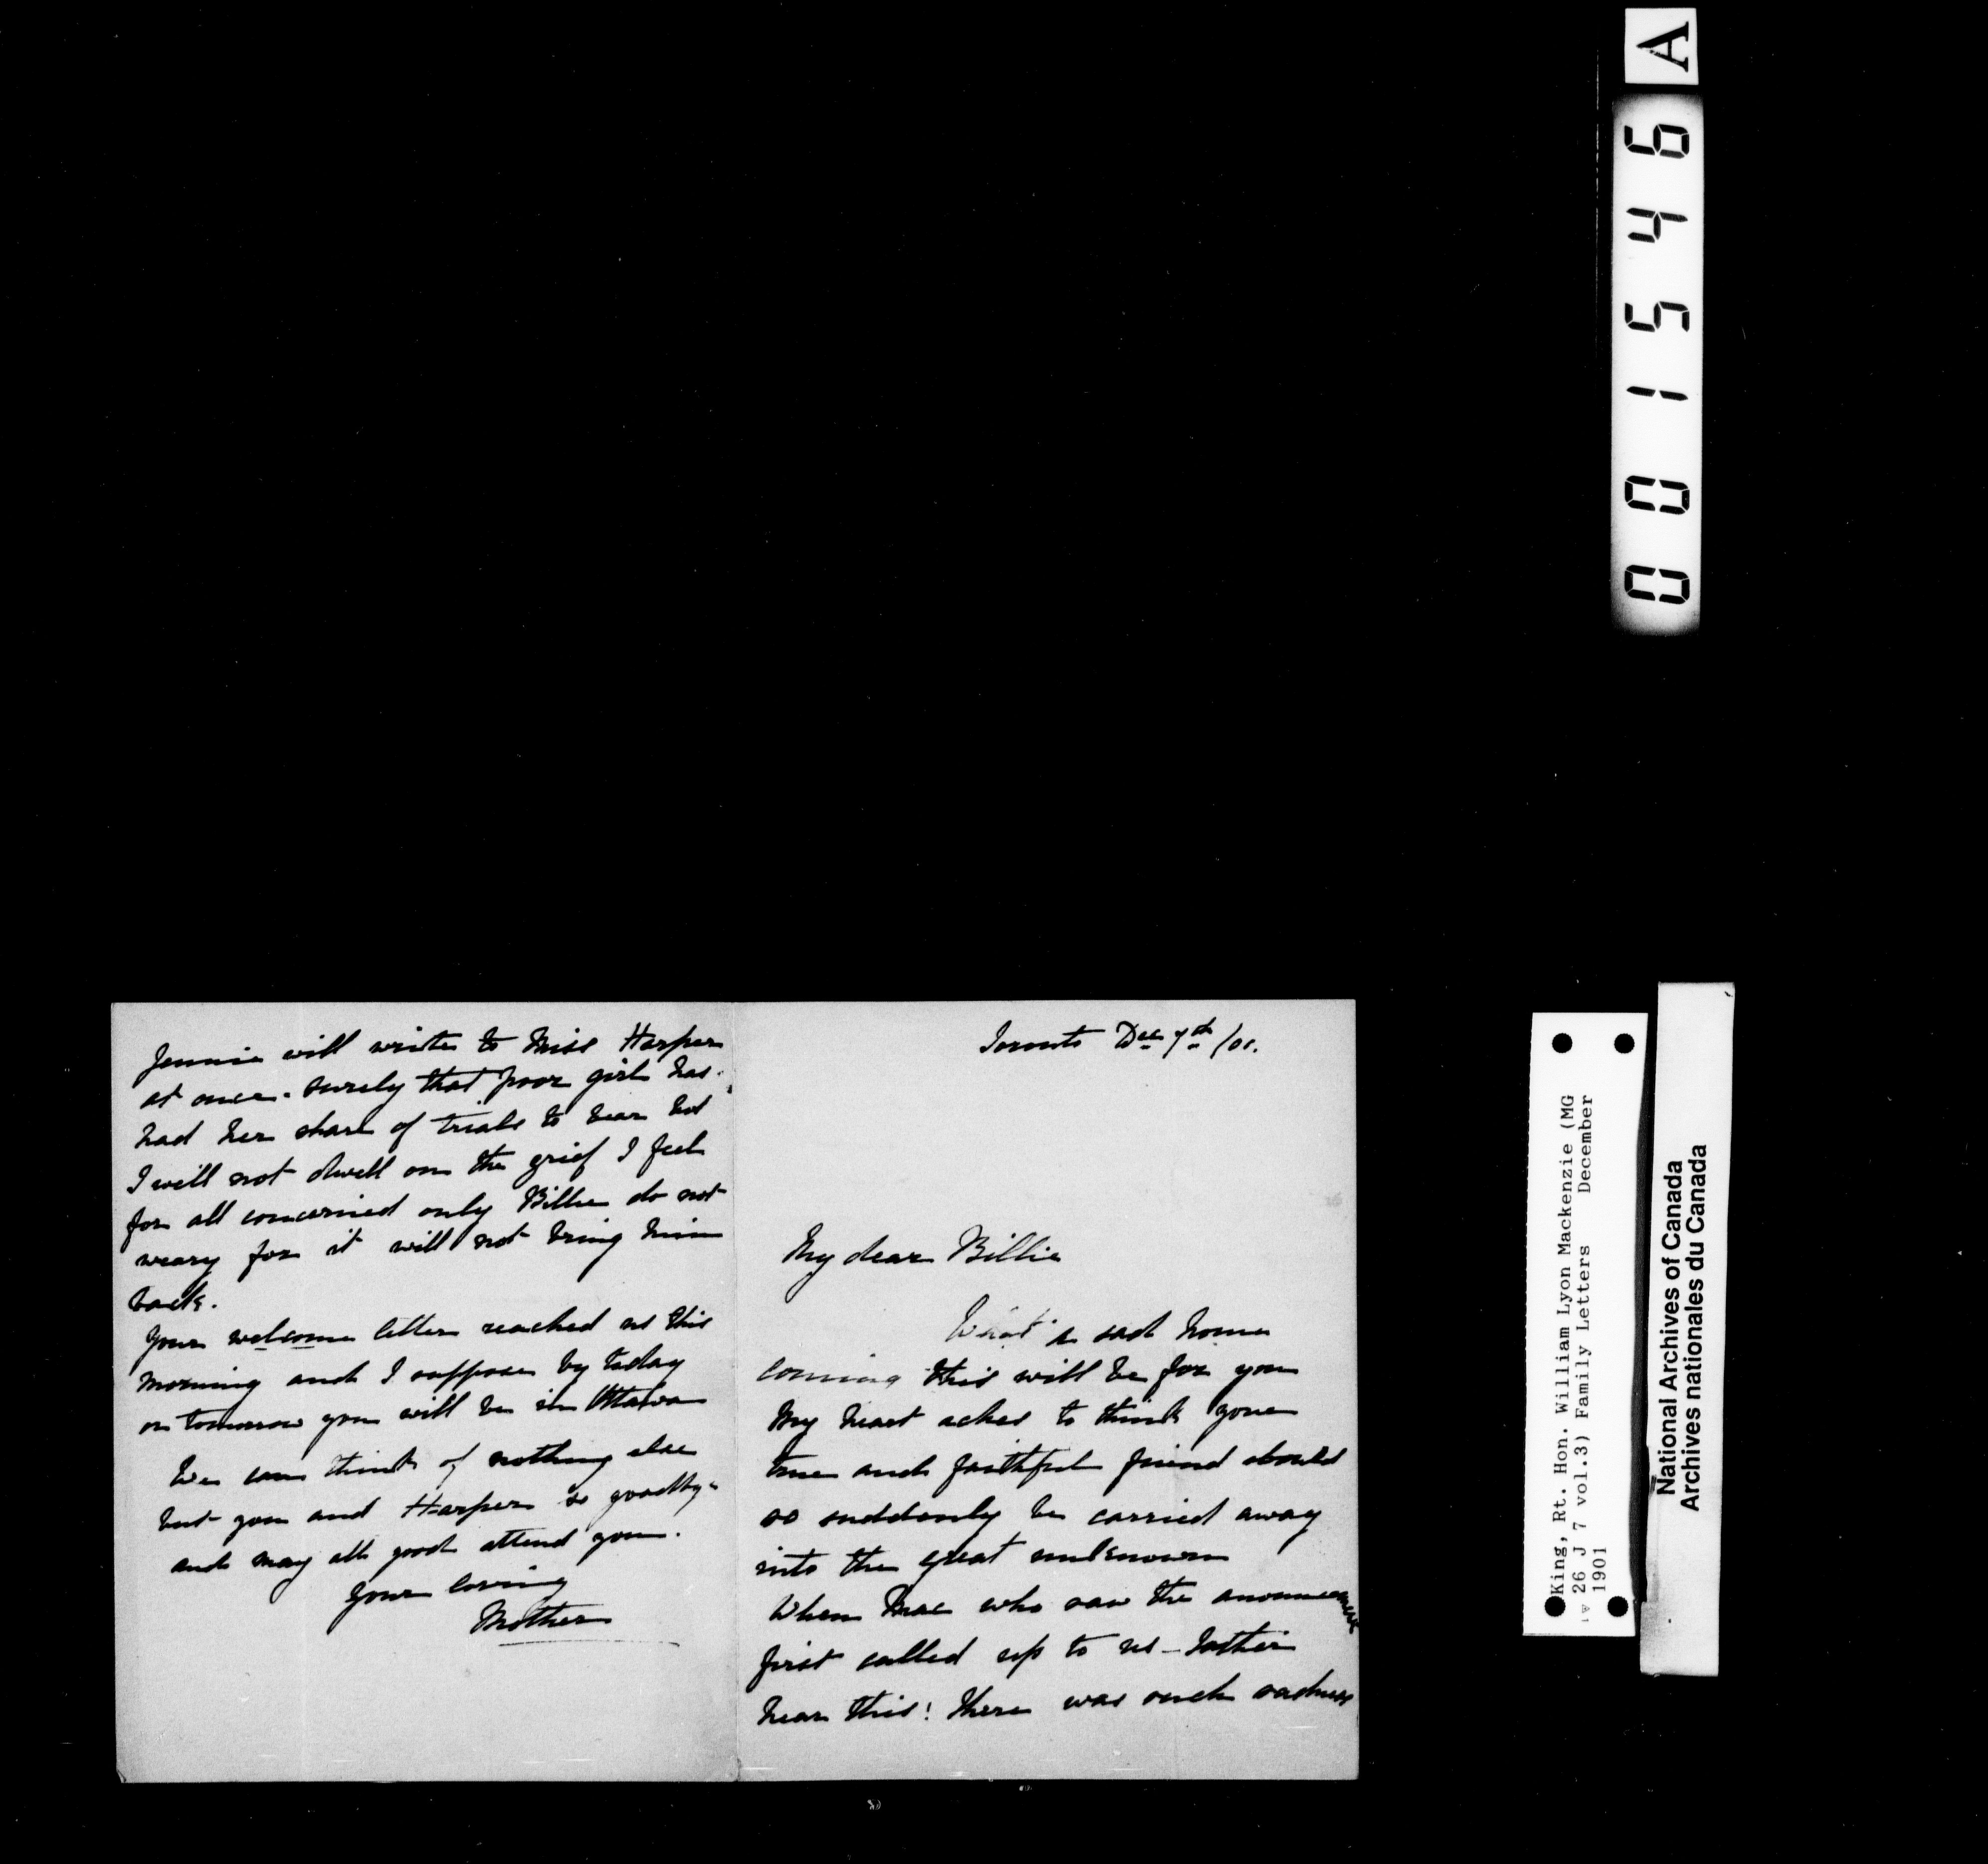 Toronto Dec 7th /01.
My dear Billie
What a sad home
coming this will be for you
My heart aches to think your
true and faithful friend should
so suddenly be carried away
into the great unknown
When Mac who saw the announcement
first called up to us - Father
hear this! there was such sadness
Jennie will write to Miss Harper
at once. surely that poor girl has
had her share of trials to bear but
I will not dwell on the grief I feel
for all concerned only Billie do not
weary for it will not bring him
back.
Your welcome letter reached us this
morning and I suppose by today
or tomorrow you will be in Ottawa
We can think of nothing else
but you and Harper so goodbye
and may all good attend you.
Your loving
Mother
A
001546
King, Rt. Hon. William Lyon Mackenzie (MG
26 J 7 vol.3) Family Letters December
1901
National Archives of Canada
Archives nationales du Canada